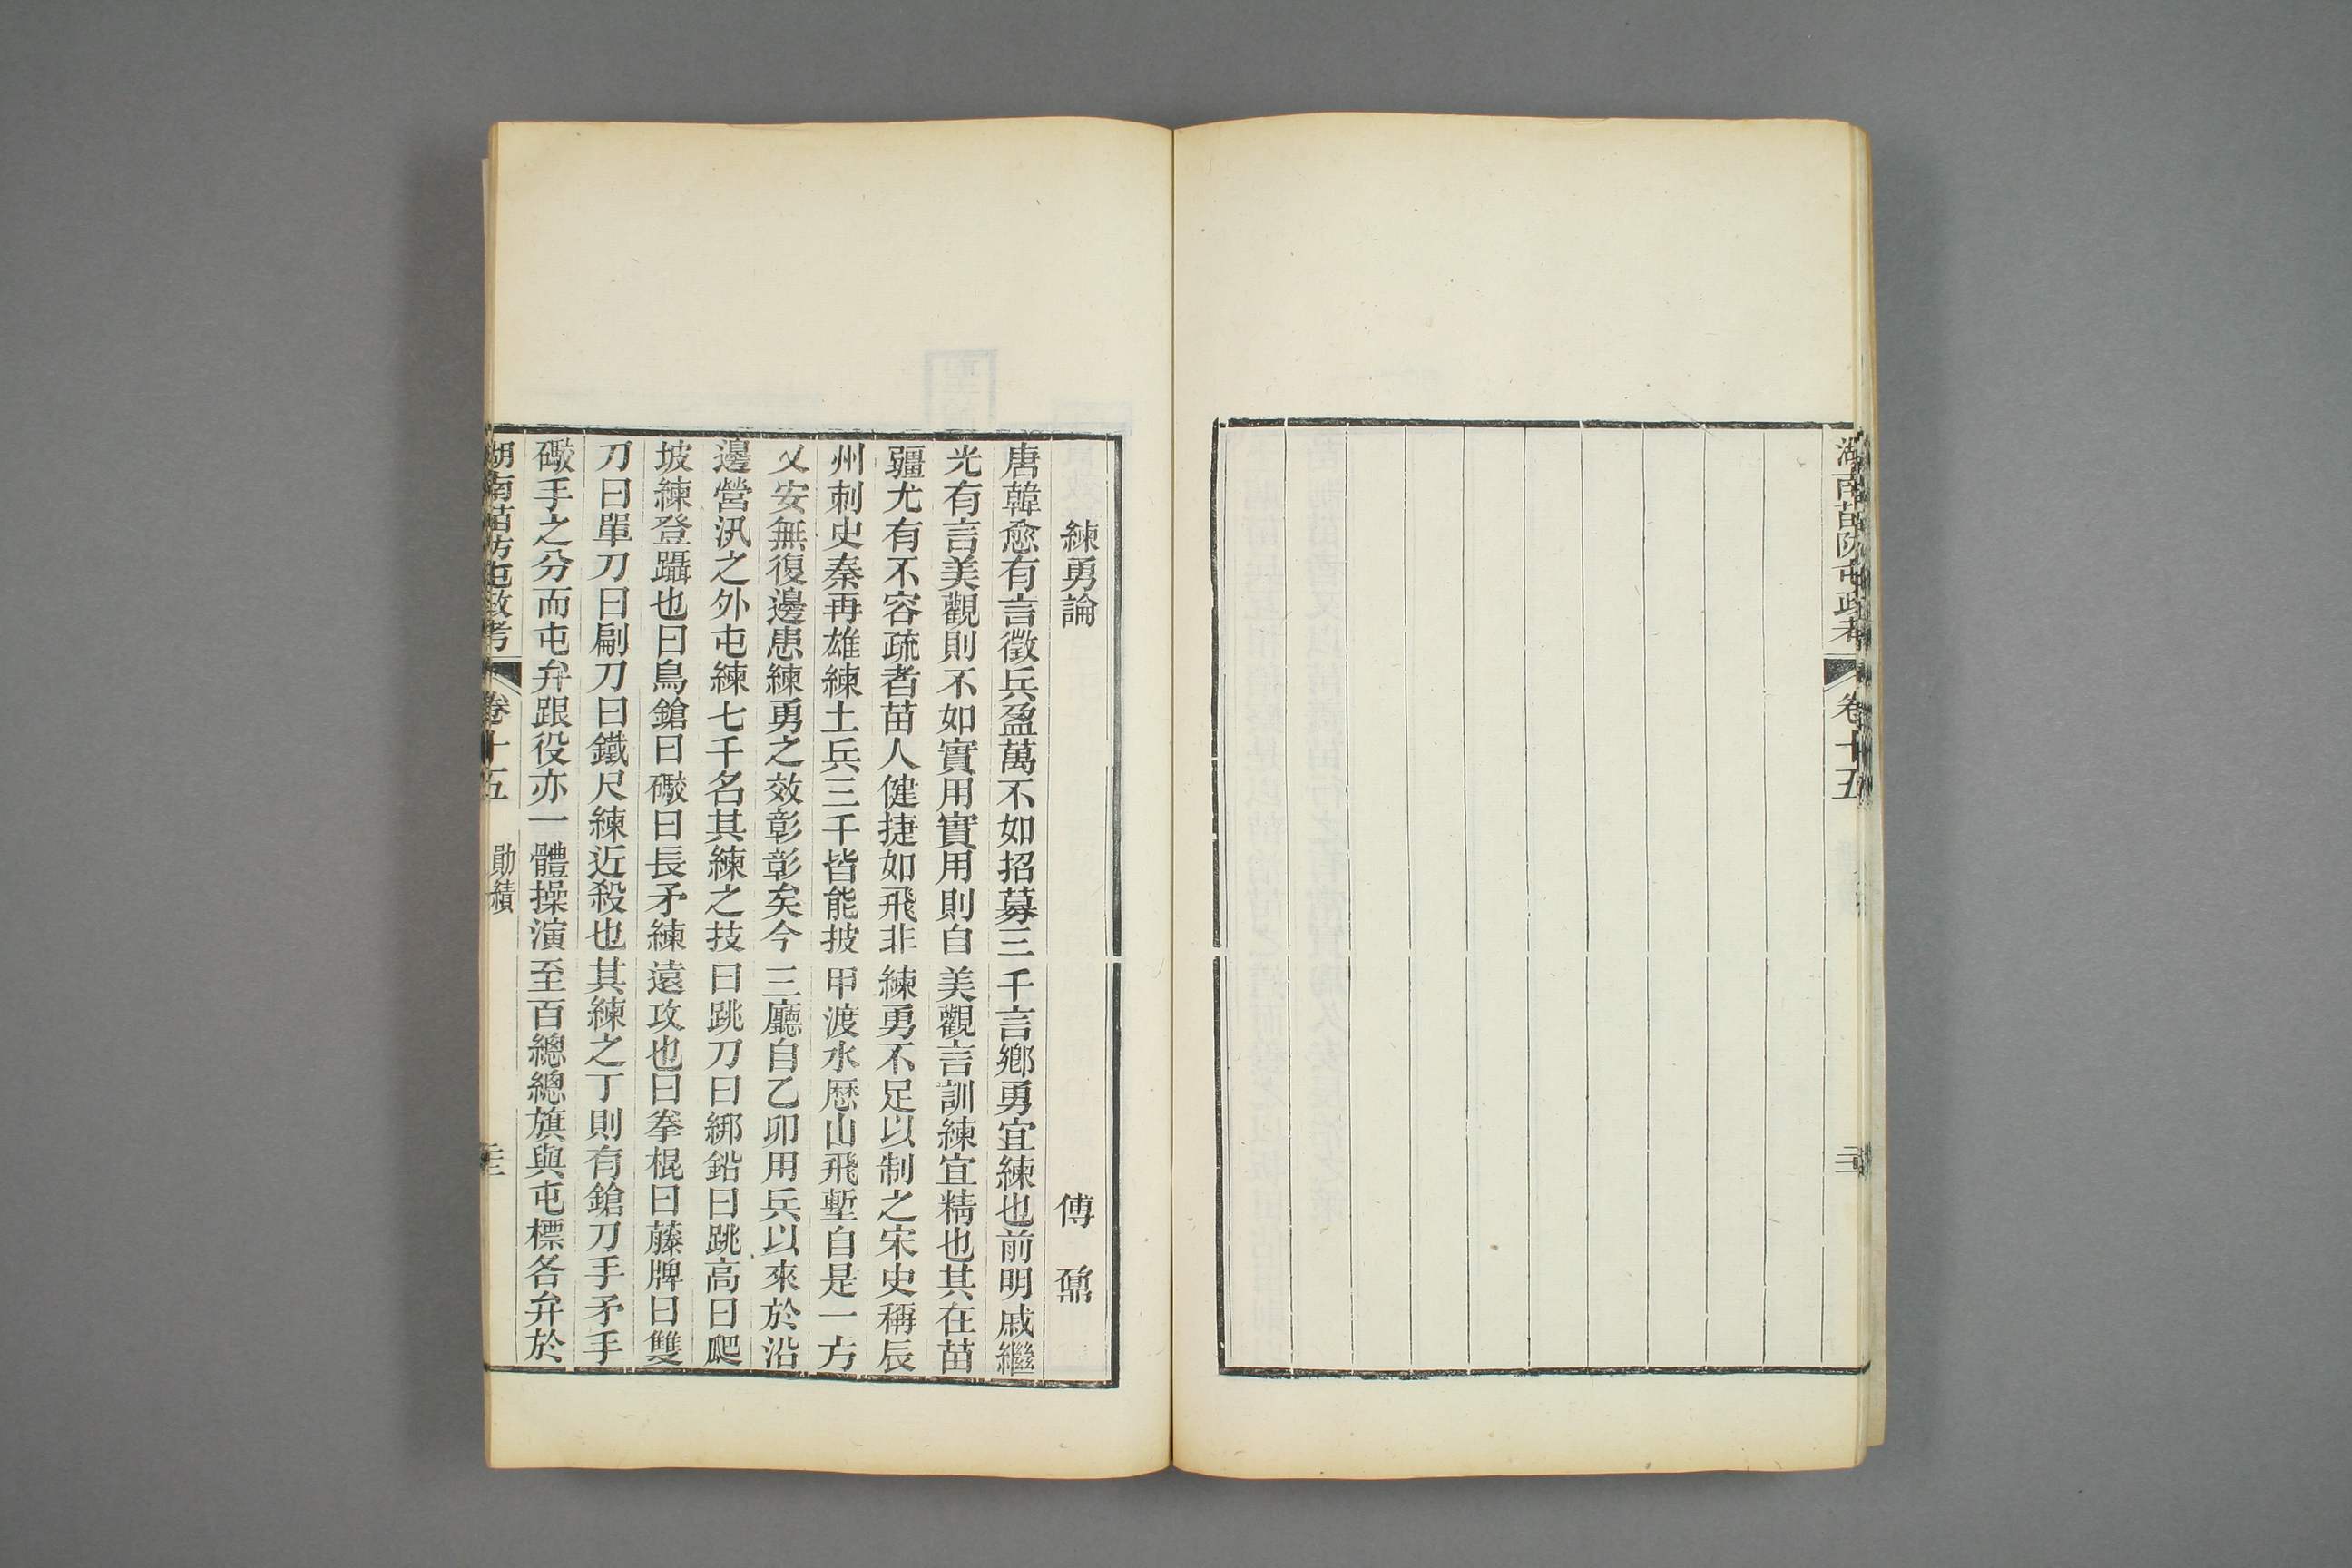 湖南苗防屯政考 卷十五
練勇論 傅鼐
唐韓愈有言徵兵盈萬不如招募三千言鄉勇宜練也前明戚繼
光有言美觀則不如實用實用則自美觀言訓練宜精也其在苗
疆尤有不容疏者苗人健捷如飛非練勇不足以制之宋史稱辰
州刺史秦再雄練土兵三千皆能披甲渡水歷山飛塹自是一方
乂安無復邊患練勇之效彰彰矣今三廳自乙卯用兵以來於沿
邊營汛之外屯練七千名其練之技曰跳刀曰綁鉛曰跳高曰爬
坡練登躡也曰鳥鎗曰礮曰長矛練遠攻也曰拳棍曰藤牌曰雙
刀曰單刀曰刷刀曰鐵尺練近殺也其練之丁則有鎗刀手矛手
礮手之分而屯弁跟役亦一體操演至百總總旗與屯標各弁於
湖南苗防屯政考 卷十五 勛績